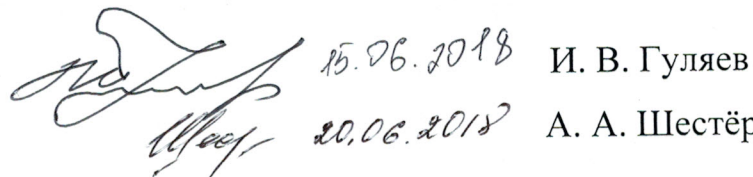 15.06.2018 И. В. Гуляев
20.06.2018 А. А. Шестёр